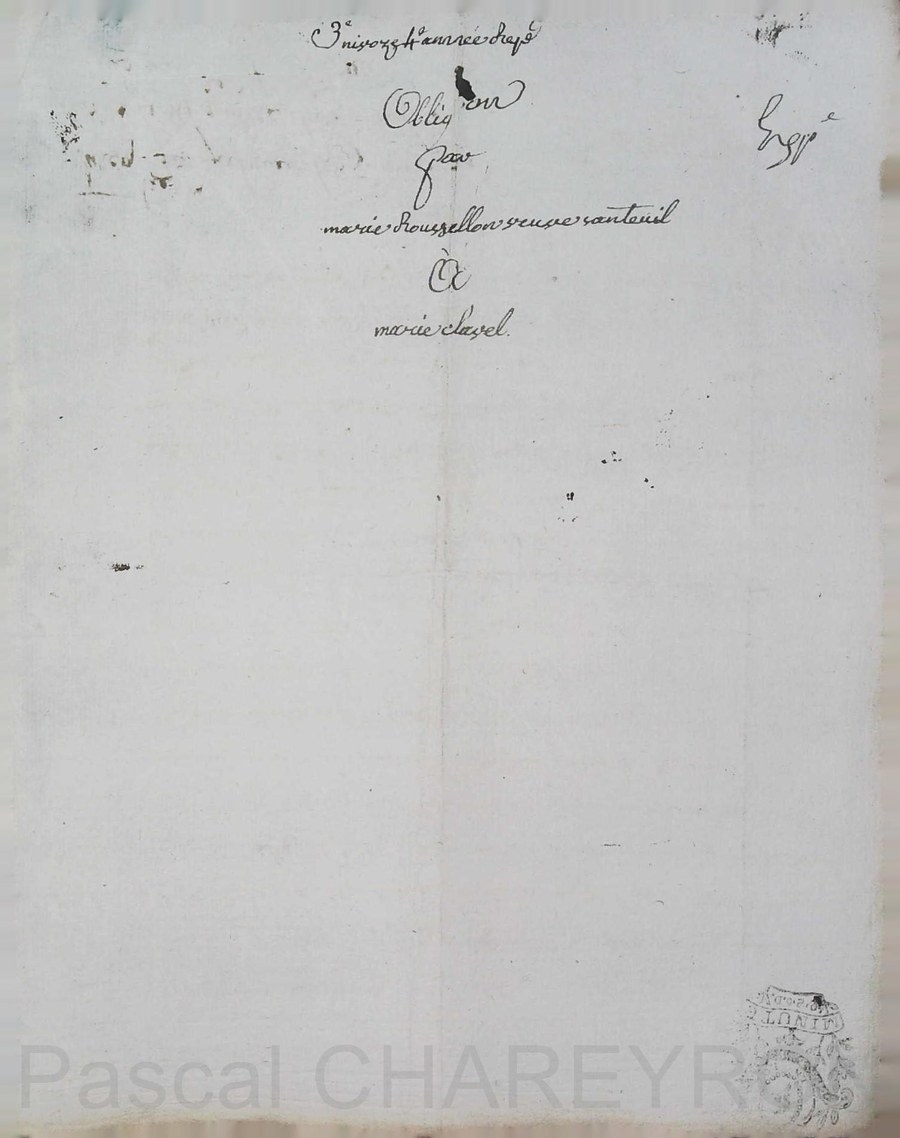 3e nivoze 4e année Repe
Obligeon
Expe
par
marie Roussellon veuve santeuil
A
marie clavel.
MINUT
Pascal CHAREYR